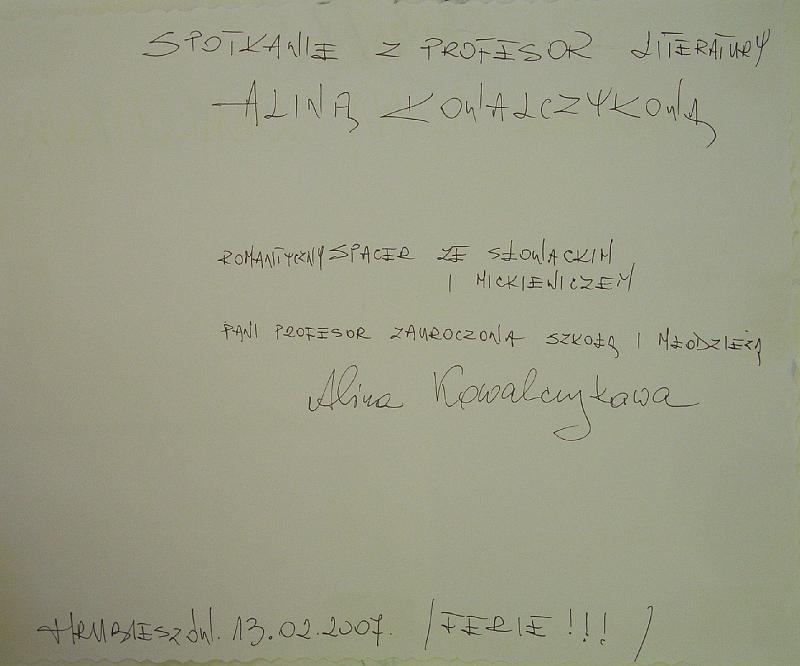 SPOTKANIE Z PROFESOR LITERATURY
ALINĄ KOWALCZYKOWĄ
ROMANTYCZNY SPACER ZE SŁOWACKIM
I MICKIEWICZEM
PANI PROFESOR ZAUROCZONA SZKOŁĄ I MŁODZIEŻĄ
Alina Kowalczykowa
HRUBIESZÓW. 13.02.2007. /FERIE !!! /